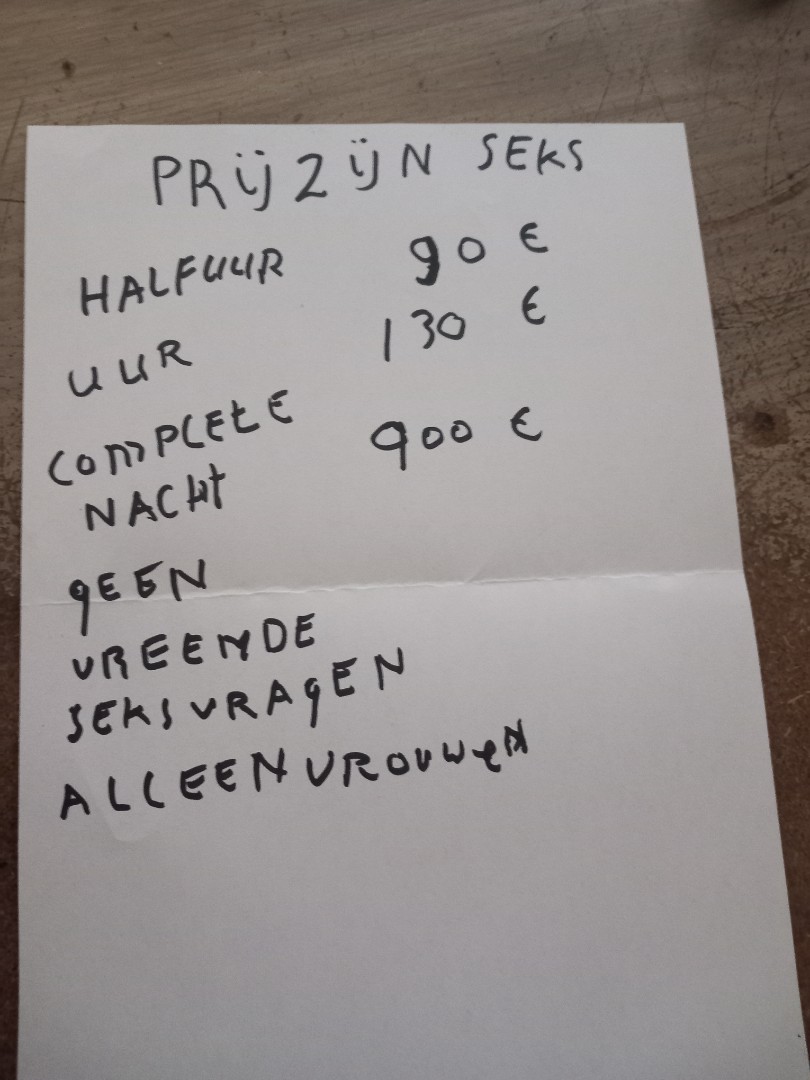 PRIJZIJN SEKS
HALFUUR 90 €
UUR 130 €
COMPLETE 900 €
NACHT
GEEN
VREEMDE
SEKSVRAGEN
ALLEEN VROUWEN